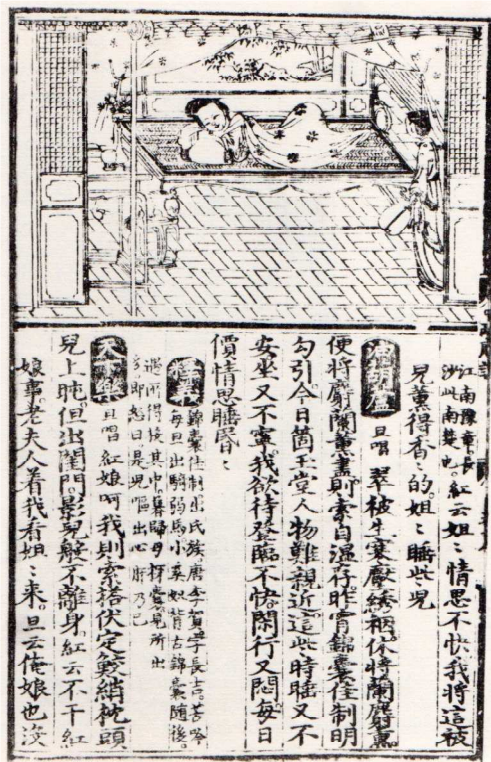 江南豫章長
沙此南楚也
紅云姐〻情思不快我將這被
兒薰得香〻的姐〻睡些兒
油葫蘆 旦唱 翠被生寒壓綉裀休將蘭麝薰
便將蘭麝薰盡則索自溫存昨宵錦囊佳制明
勾引今日箇玉堂人物難親近這些時睡又不
安坐又不寧我欲待登臨不快閑行又悶每日
價情思睡昏〻
釋義
錦囊佳制出氏族唐李賀字長吉苦吟
每旦出騎弱馬小奚奴背古錦囊隨後
遇所得後其中暮歸母探囊見所出
多即怒曰是兒嘔出心肝乃已
天下樂 旦唱 紅娘呵我則索搭伏定鮫綃枕頭
兒上盹但出閨門影兒般不離身紅云不干紅
娘事老夫人着我看姐〻來旦云俺娘也沒